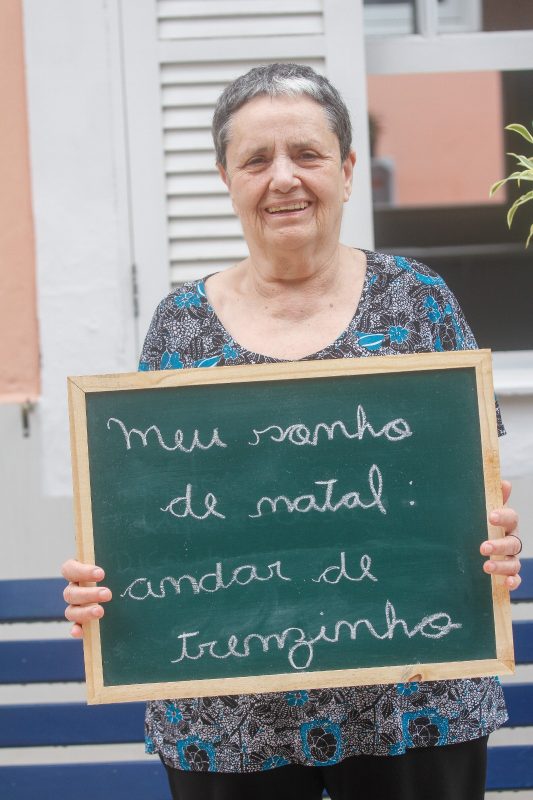 Meu sonho
de natal :
andar de
trenzinho